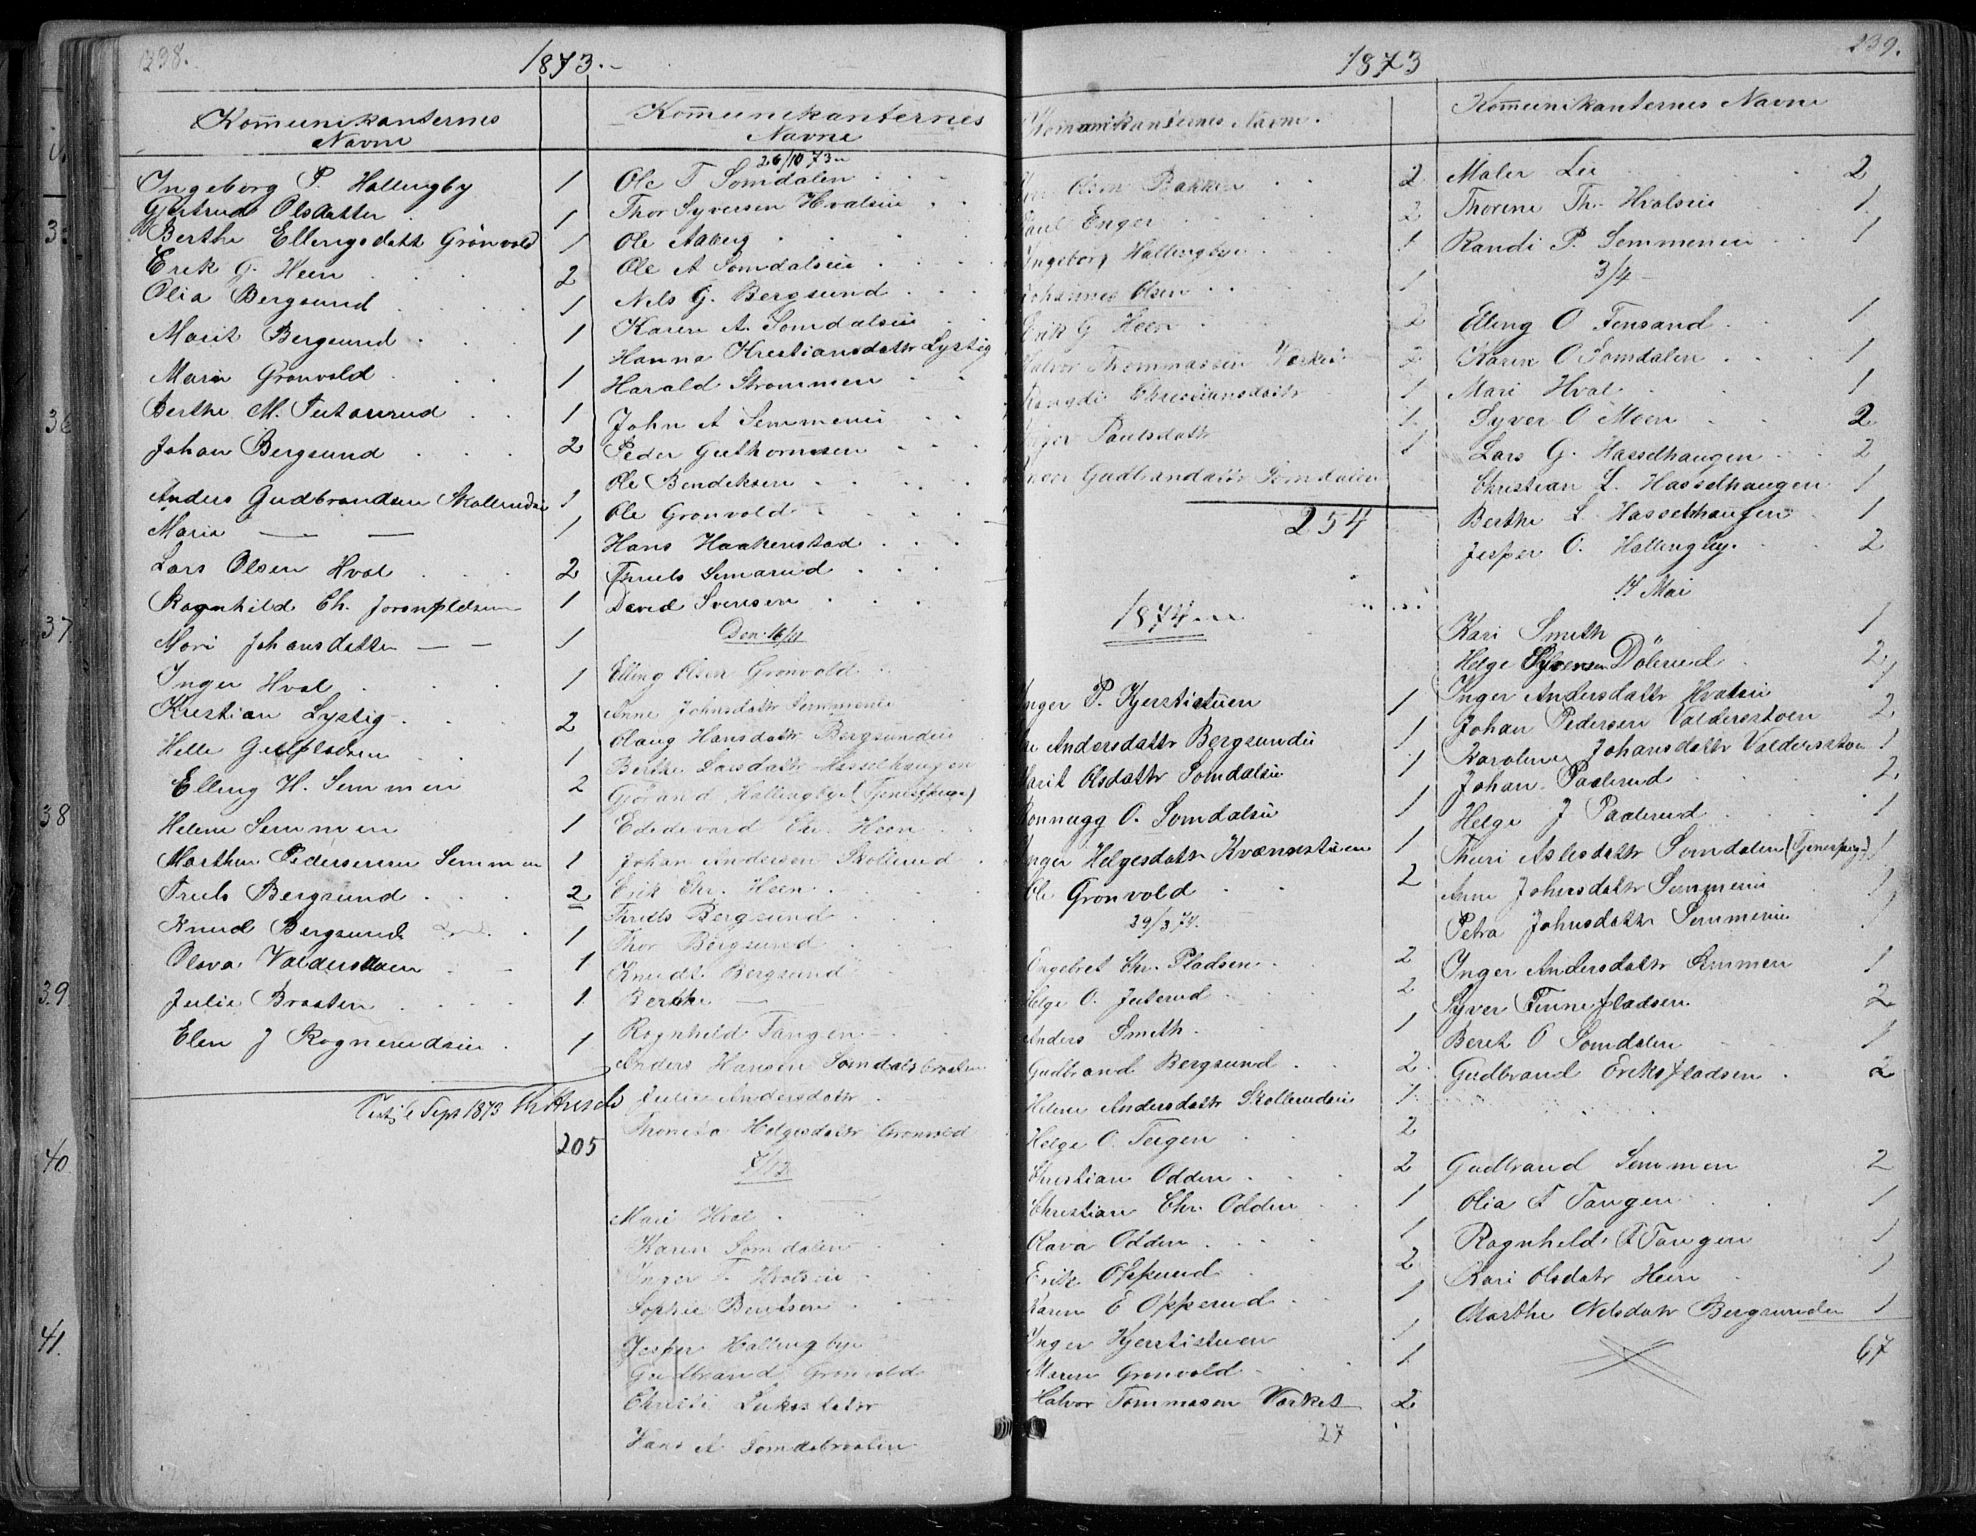 238.
1873.
Kommunikanternes
Navne
Ingeborg P. Hallingby 1
Gjertrud Olsdatter 1
Berthe Ellingsdatt Grönvold 1
Erik G. Heen 2
Olia Bergsund 1
Marit Bergsund 1
Mari Gronvold 1
Berthe M. 1
Johan Bergsund 2
Anders Gudbrandsen 1
Marie — — 1
Lars Olsen Hval 2
Ragnhild Ch. 1
Mari Johansdatter — — 1
Inger Hval 1
Kristian Lystig 2
Helle 1
Elling H. Semmen 2
Helene Semmen 1
Marthe Pedersen Semmen 1
Truls Bergsund 2
Knud Bergsund 1
Olava Valderstoen 1
Julie Braaten 1
Elen J Rognerudeie 1
Sept 1873
205
Kommunikanternes
Navne
26/10 73
Ole T Somdalen
Thor Syversen Hvalseie
Ole Aaberg
Ole A Somdalseie
Nils G. Bergsund
Karen A. Somdalseie
Hanna Kristiansdatr Lystig
Harald Strommen
John A Semmeneie
Peder Guthormsen
Ole Bendiksen
Ole Gronvold
Hans Haakenstad
Truls Simarud
David Svensen
Den 16/11
Elling Olsen Gronvold
Anne Johnsdatr Semmeneie
Olaug Hansdatr Bergsundeie
Berthe Larsdatr Hasselhaugen
Hallingby (Tjenestpige)
Heen
Johan Andersen
Erik Chr. Heen
Thruls Bergsund
Thor Bergsund
Knudt Bergsund
Berthe —
Ragnhild Tangen
Anders Hansen Somdalsbraaten
Julie Andersdatr
Helgesdatr Gronvold
7/12
Mari Hval
Karen Somdalen
Inger T. Hvalseie
Sophie Bentsen
Jesper Hallingbye
Gudbrand Gronvold
Christi
Hans A Somdsbraaten
1873
239.
Kommunikanternes Navne.
Olsen Bakken 2
Paul Enger 2
Ingeborg Hallingbye 1
Johannes Olsen 1
Erik G Heen 2
Halvor Thommassen 2
Christiansdatr 1
Paulsdatr 1
Gudbrandsdatr Somdalen 1
254
1874
Inger P. Kjerstistuen 1
Andersdatr Bergsundeie 1
Marit Olsdatr Somdalseie 1
Ronnaug O. Somdalseie 1
Inger Helgesdatr Kværnstuen 1
Ole Gronvold 2
29/3 74.
Engebret Chr. Pladsen 2
Helge O. Juterud 2
Anders Smith 1
Gudbrand Bergsund 2
Helene Andersdatr 1
Helge O. Teigen 2
Christian Odden 2
Christian Chr. Odden 1
Olava Odden 1
Erik Opperud 2
Karen E Opperud 1
Inger Kjerstistuen 1
Maren Gronvold 1
Halvor Tommasen 2
27
Kommunikanternes Navne
Maler Lie 2
Thorine Th. Hvalseie 1
Randi P. Semmeneie 1
3/4 —
Elling O Finsand 1
Karen O Somdalen 1
Mari Hval 1
Syver O Moen 2
Lars G. Hasselhaugen 2
Christian L. Hasselhaugen 1
Berthe L. Hasselhaugen 1
Jesper O. Hallingby 2
14 Mai
Kari Smith 1
Helge Syversen Dölerud 2
Inger Andersdatr Hvalseie 1
Johan Pedersen Valderstoen 2
Karoline Johansdatr Valderstoen 1
Johan Paalerud 2
Helge J Paalerud 1
Thuri Aslesdatr Somdalen (Tjenstpige) 1
Anne Johnsdatr Semmeneie 1
Petra Johnsdatr Semmeneie 1
Inger Andersdatr Semmen 1
Syver Finnepladsen 2
Beret O Somdalen 1
Gudbrand Erikspladsen 2
Gudbrand Semmen 2
Olia T Tangen 1
Ragnhild T Tangen 1
Kari Olsdatr Heen 1
Marthe Nilsdatr Bergsunden 1
67